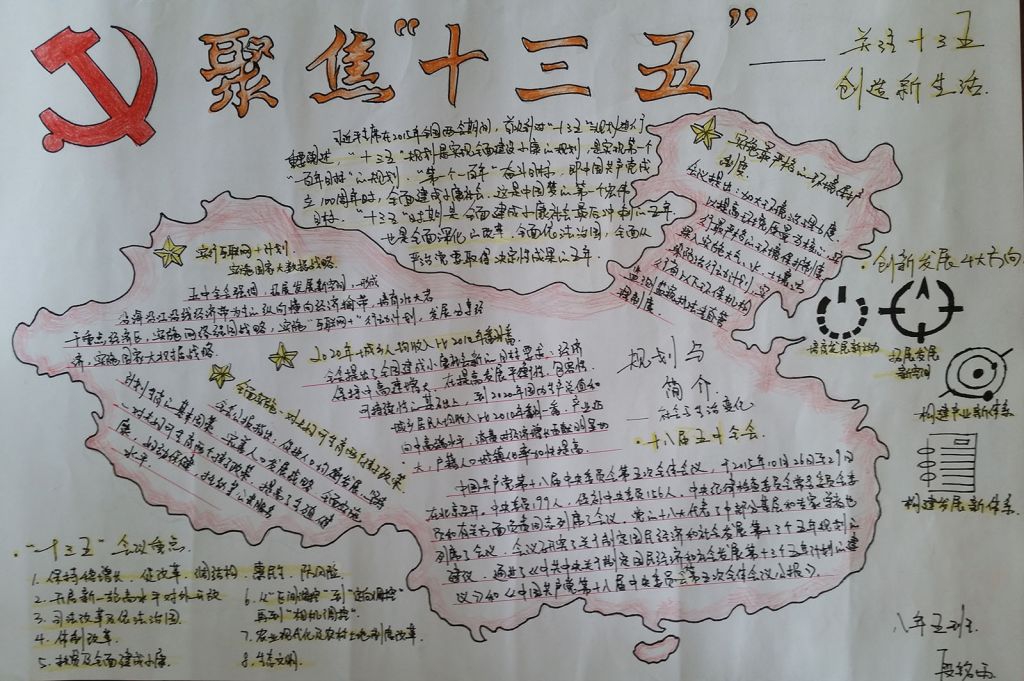 聚焦“十三五”
——关注十三五
创造新生活.
习近平主席在2015年全国两会期间，首次对“十三五”规划进行了
重要阐述，“十三五”规划是实现全面建设小康的规划，是实现第一个
“百年目标”的规划.“第一个一百年”奋斗目标，即中国共产党成
立100周年时，全面建成小康社会.这是中国梦的第一个宏伟
目标.“十三五”时期是全面建成小康社会最后冲刺的五年.
也是全面深化的改革.全面依法治国，全面从
严治党要取得决定性成果的五年.
实施最严格的环境保护
制度.
会议提出：加大环境治理力度.
以提高环境质量为核心.
实行互联网+计划.
实施国家大数据战略.
五中全会强调：拓展发展新空间，形成
沿海沿江沿线经济带为主的纵向横向经济轴带，培育壮大若
干重点经济区，实施网络强国战略，实施“互联网+”行动计划，发展分享经
济，实施国家大数据战略.
2020年城乡人均收入比2010年翻一番
全会提出了全国建成小康社会新的目标要求：经济
保持中高速增长，在提高发展平衡性、包容性、
可持续性的基础上，到2020年国内生产总值和
城乡居民人均收入比2010年翻一番，产业迈
向中高端水平，消费对经济增长贡献明显加
大，户籍人口城镇化率加快提高.
规划与
简介.
——社会与生活变化
·十八届五中全会.
中国共产党第十八届中央委员会第五次全体会议，于2015年10月26日至29日
在北京举行.中央委员199人，候补中央委员156人，中央纪律检查委员会常务委员会委
员和有关方面负责同志列席了会议.党的十八大代表中部分基层和专家学者也
列席了会议.会议研究了关于制定国民经济和社会发展第十三个五年规划的
建议，通过了《中共中央关于制定国民经济和社会发展第十三个五年计划的建
议》和《中国共产党第十八届中央委员会第五次全体会议公报》.
·创新发展4大方向
培育发展新动力
拓展发展
新空间
构建产业新体系
构建发展新体系.
·“十三五”会议重点.
1.保持稳增长、促改革、调结构、惠民生、防风险.
2.开展新一轮高水平对外开放
3.司法改革及依法治国.
4.体制改革.
5.扶贫及全面建成小康.
6.从“区间调控”到“定向调控”
再到“相机调控”.
7.农业现代化及农村土地制度改革.
8.生态文明.
八年五班.